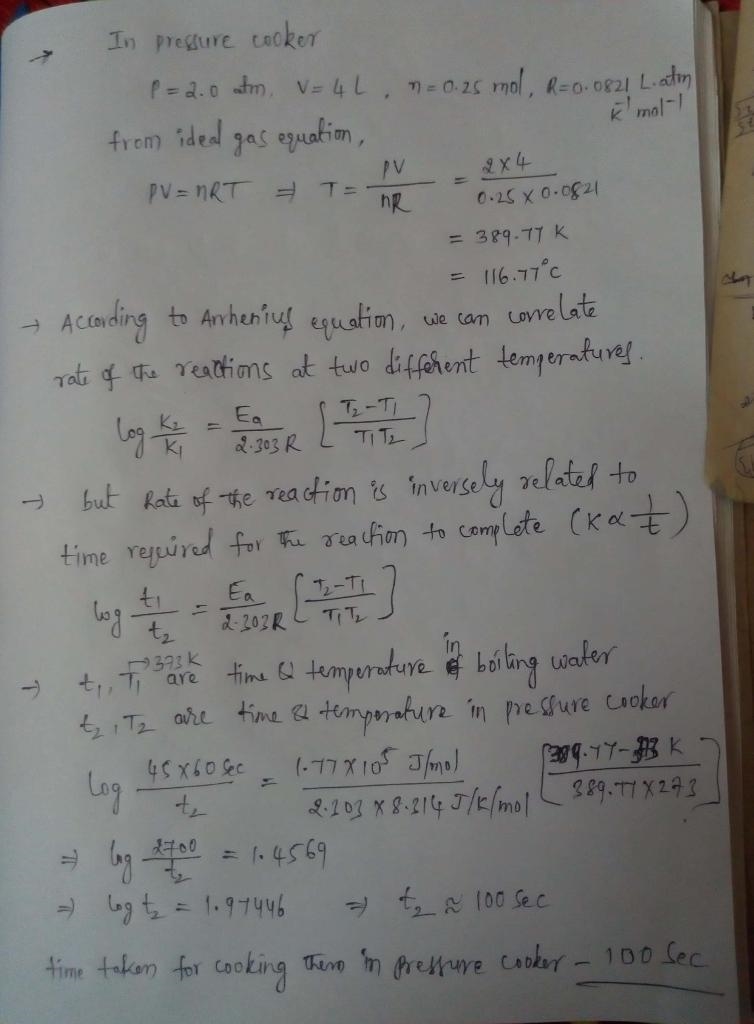 → In pressure cooker
P = 2.0 atm, V = 4 L, n = 0.25 mol, R = 0.0821 L.atm K⁻¹ mol⁻¹
from ideal gas equation,
PV = nRT ⇒ T = PV / nR = 2 × 4 / 0.25 × 0.0821
= 389.77 K
= 116.77°C
→ According to Arrhenius equation, we can correlate
rate of the reactions at two different temperatures.
log K₂ / K₁ = Ea / 2.303 R [ T₂ - T₁ / T₁ T₂ ]
→ but Rate of the reaction is inversely related to
time required for the reaction to complete (K ∝ 1/t)
log t₁ / t₂ = Ea / 2.303 R [ T₂ - T₁ / T₁ T₂ ]
→ t₁, T₁ → 373 K are time & temperature in boiling water
t₂, T₂ are time & temperature in pressure cooker
log 45 × 60 sec / t₂ = 1.77 × 10⁵ J/mol / 2.303 × 8.314 J/K/mol [ 389.77 - 373 K / 389.77 × 273 ]
⇒ log 2700 / t₂ = 1.4569
⇒ log t₂ = 1.97446 ⇒ t₂ ≈ 100 sec
time taken for cooking them in pressure cooker - 100 sec